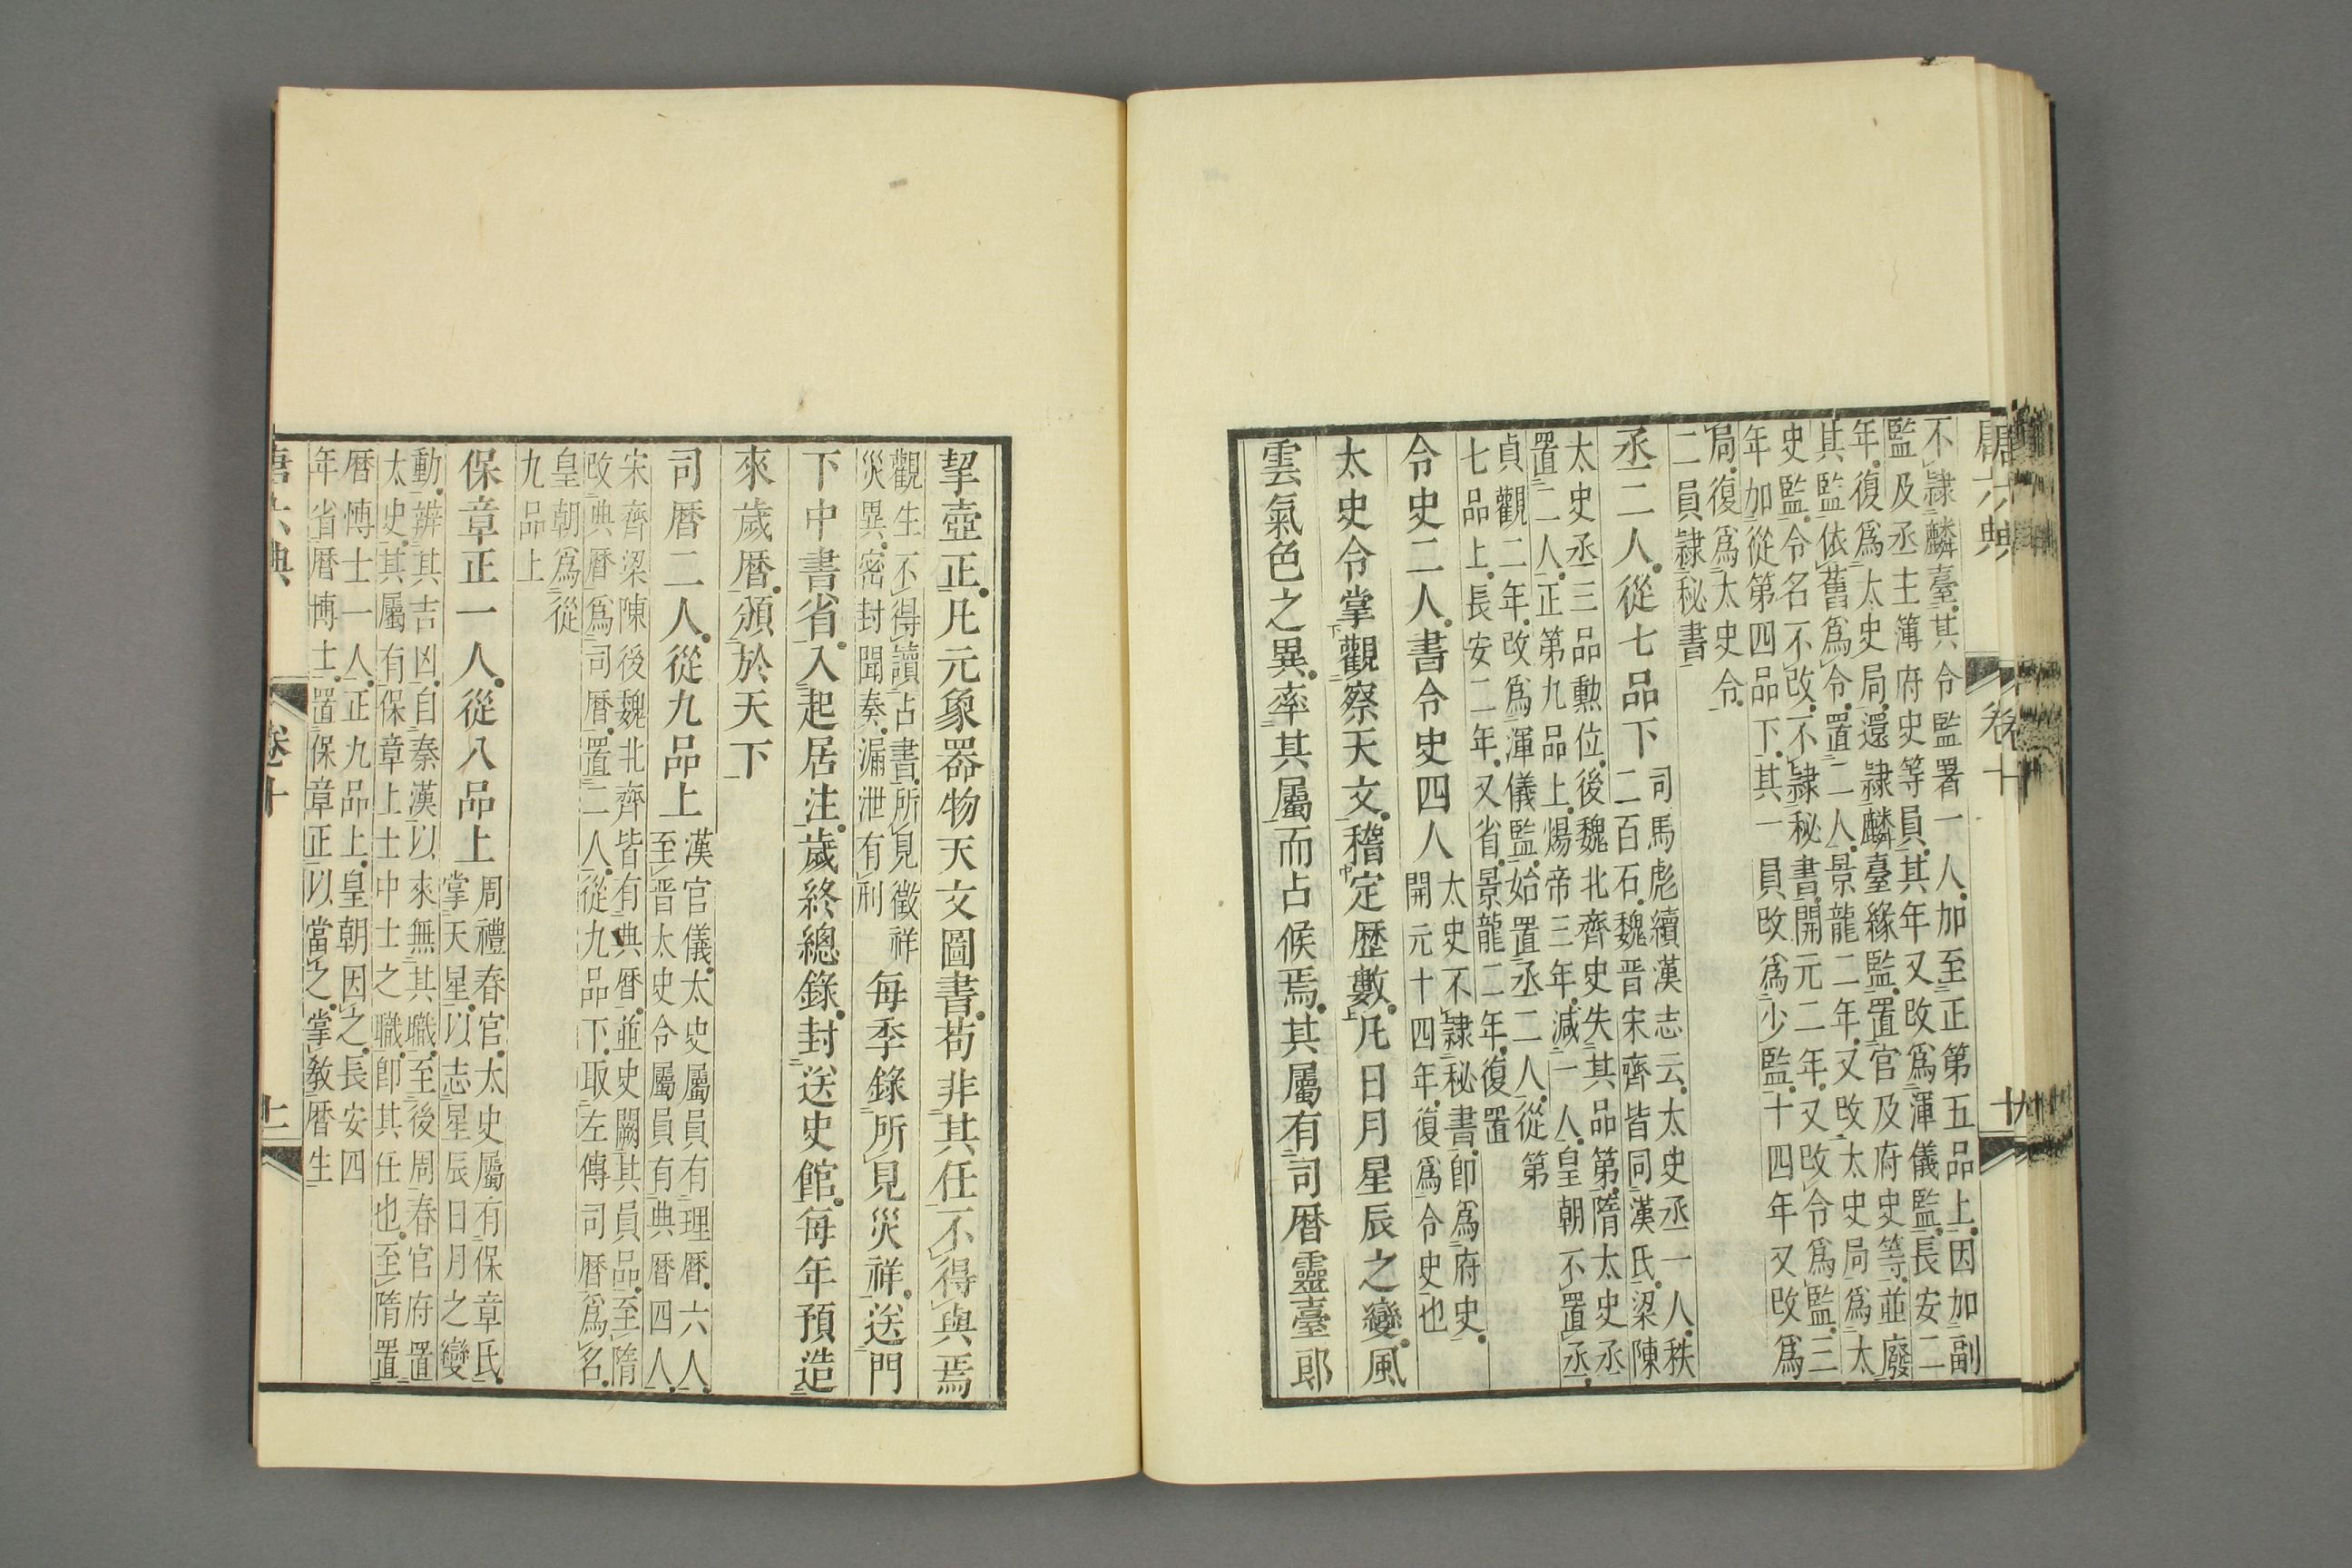 唐六典 卷十 十
不隷麟臺其令監署一人加至正第五品上因加副
監及丞主簿府史等員其年又改爲渾儀監長安二
年復爲太史局還隷麟臺緣監置官及府史等並廢
其監依舊爲令置二人景龍二年又改太史局爲太
史監令名不改不隷秘書開元二年又改令爲監三
年加從第四品下其一員改爲少監十四年又改爲
局復爲太史令
二員隷秘書
丞二人從七品下
司馬彪續漢志云太史丞一人秩
二百石魏晋宋齊皆同漢氏梁陳
太史丞三品勲位後魏北齊史失其品第隋太史丞
置二人正第九品上煬帝三年減一人皇朝不置丞
貞觀二年改爲渾儀監始置丞二人從第
七品上長安二年又省景龍二年復置
令史二人書令史四人
太史不隷秘書卽爲府史
開元十四年復爲令史也
太史令掌觀察天文稽定歴數凡日月星辰之變風
雲氣色之異率其屬而占候焉其屬有司暦靈臺郎
挈壺正凡元象器物天文圖書苟非其任不得與焉
觀生不得讀占書所見徵祥
災異密封聞奏漏泄有刑
每季錄所見災祥送門
下中書省入起居注歲終總錄封送史館每年預造
來歲暦頒於天下
司暦二人從九品上
漢官儀太史屬員有理暦六人
至晋太史令屬員有典暦四人
宋齊梁陳後魏北齊皆有典暦並史闕其員品至隋
改典暦爲司暦置二人從九品下取左傳司暦爲名
皇朝爲從
九品上
保章正一人從八品上
周禮春官太史屬有保章氏
掌天星以志星辰日月之變
動辨其吉凶自秦漢以來無其職至後周春官府置
太史其屬有保章上士中士之職卽其任也至隋置
暦博士一人正九品上皇朝因之長安四
年省暦博士置保章正以當之掌敎暦生
唐六典 卷十